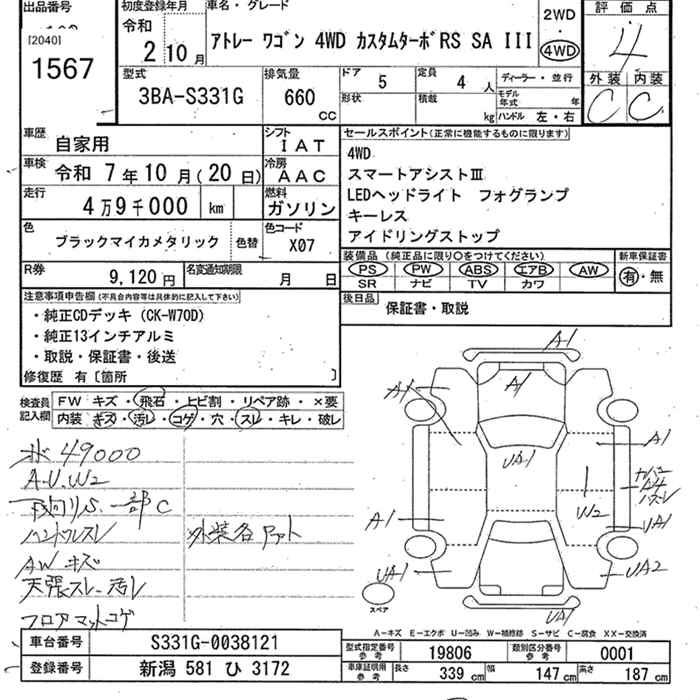 出品番号
[2040]
1567
初度登録年月
令和
2 10月
車名・グレード
アトレー ワゴン 4WD カスタムターボRS SA III
2WD
・
4WD
評価点
4
外装 内装
C C
型式
3BA-S331G
排気量
660
CC
ドア
5
定員
4 人
形状
積載
kg
ディーラー・並行
モデル年式 年
ハンドル 左・右
車歴
自家用
シフト
IAT
車検
令和 7年10月(20日)
冷房
AAC
走行
4万9千000 km
燃料
ガソリン
色
ブラックマイカメタリック
色替
色コード
X07
R券
9,120円
名変通知期限
月 日
セールスポイント(正常に機能するものに限ります)
4WD
スマートアシストIII
LEDヘッドライト フォグランプ
キーレス
アイドリングストップ
装備品(純正品に限り○をつけてください)
PS PW ABS エアB AW
SR ナビ TV カワ
新車保証書
有・無
後日品
保証書・取説
注意事項申告欄(不具合内容等は具体的に記入して下さい)
・純正CDデッキ(CK-W70D)
・純正13インチアルミ
・取説・保証書・後送
修復歴 有〔箇所 〕
検査員記入欄
FW キズ・飛石・ヒビ割・リペア跡・×要
内装・キズ・汚レ・コゲ・穴・スレ・キレ・破レ
49000
A.U.W2
下回りS.一部C
ハンドルスレ
AW キズ
天張スレ 汚レ
フロアマットコゲ
A1
A1
A1
UA1
A1
W2
カバー
A4
UA1
A1
UA1
UA2
UA1
スペア
A-キズ E-エクボ U-凹み W-補修跡 S-サビ C-腐食 XX-交換済
車台番号
S331G-0038121
登録番号
新潟 581 ひ 3172
型式指定番号
参考
19806
類別区分番号
参考
0001
車庫証明用
参考
長さ
339 cm
幅
147 cm
高さ
187 cm